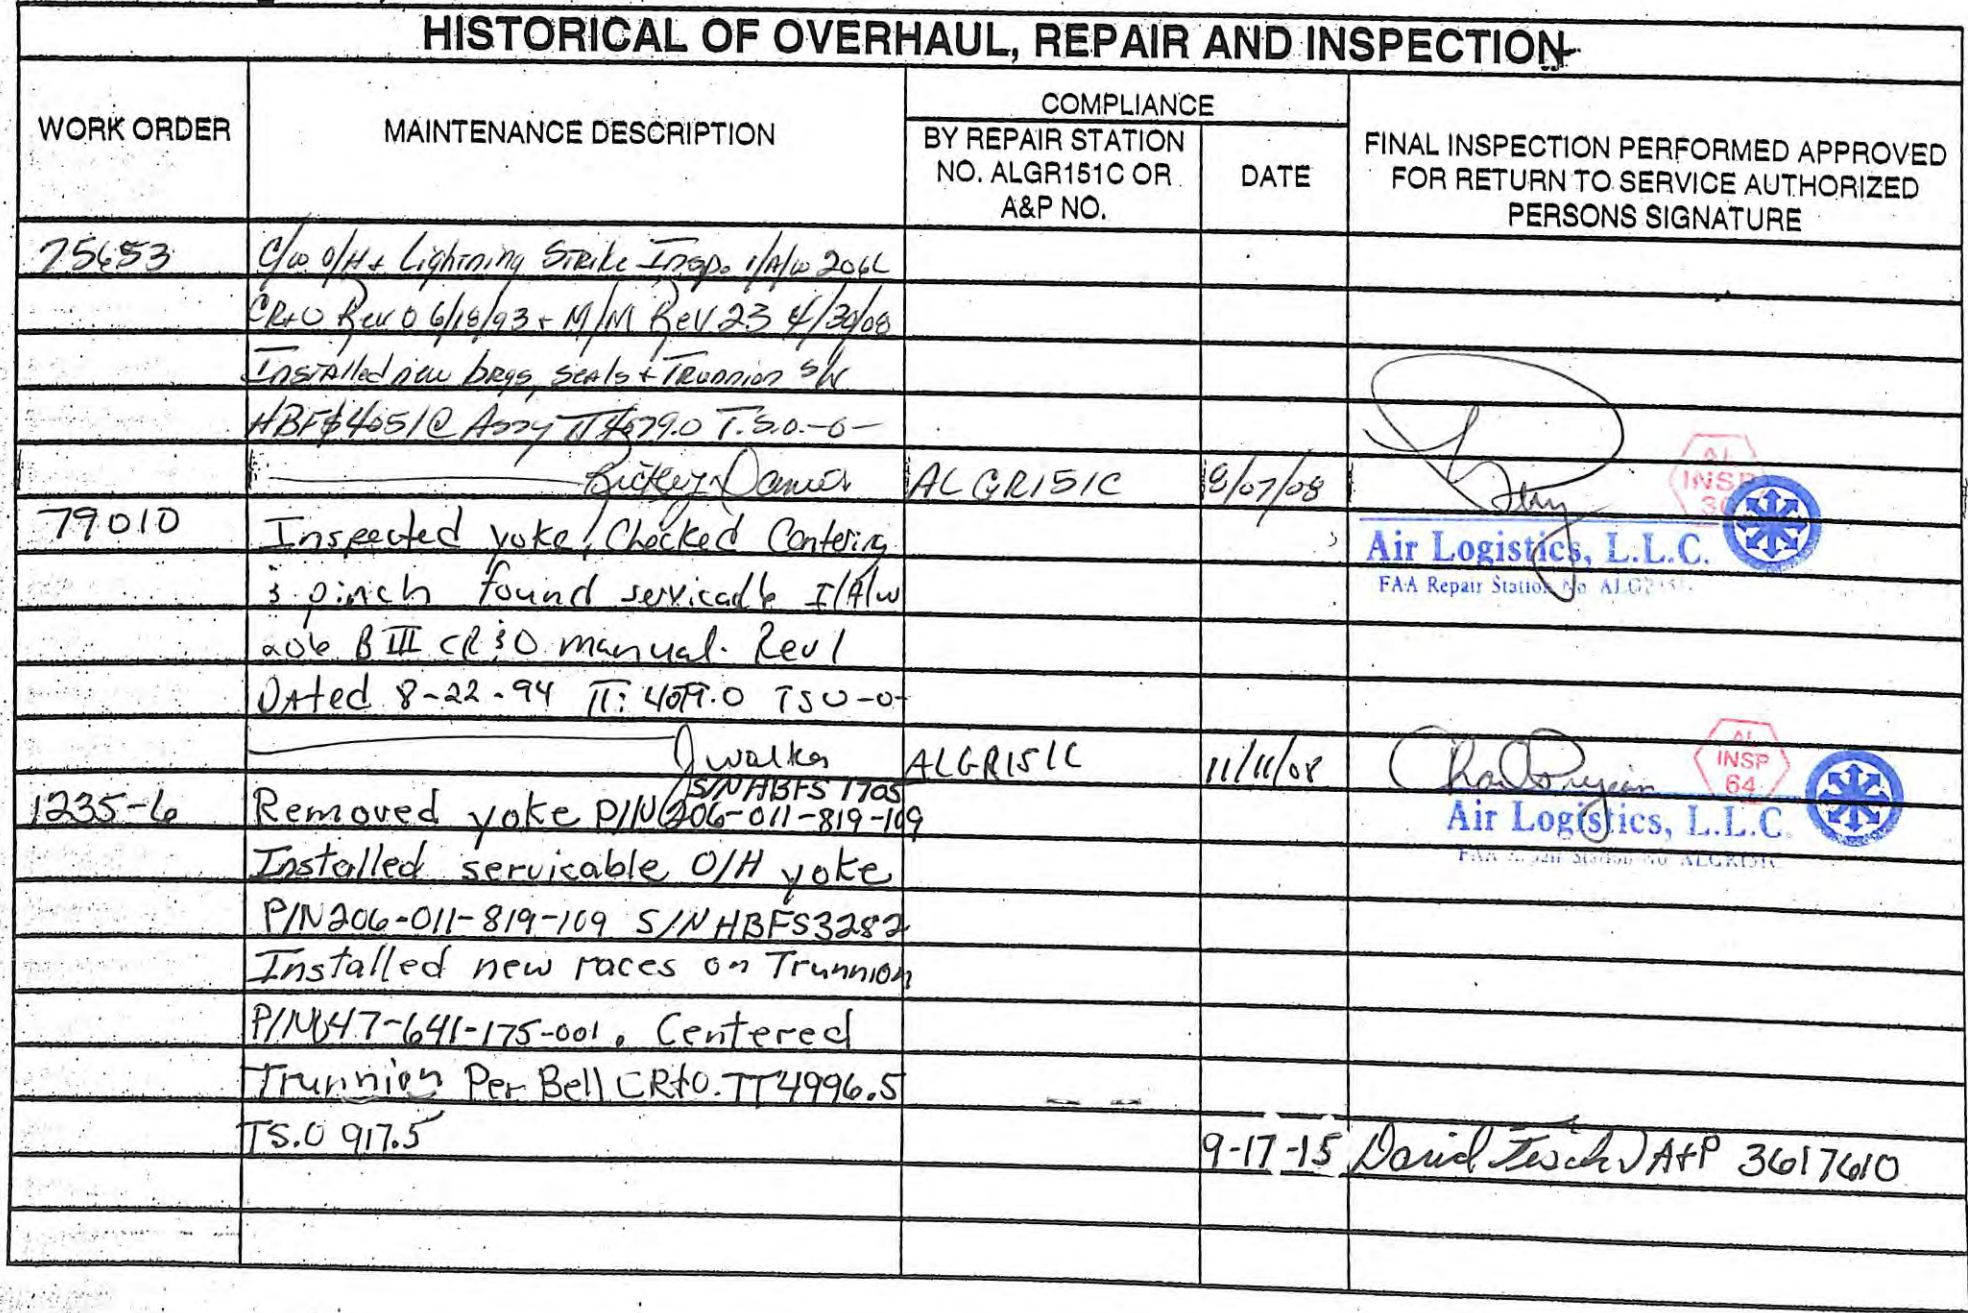 HISTORICAL OF OVERHAUL, REPAIR AND INSPECTION
WORK ORDER
MAINTENANCE DESCRIPTION
COMPLIANCE
BY REPAIR STATION
NO. ALGR151C OR
A&P NO.
DATE
FINAL INSPECTION PERFORMED APPROVED
FOR RETURN TO SERVICE AUTHORIZED
PERSONS SIGNATURE
75653 C/w O/H + Lightning Strike Insp. I/A/w 206L
CR+O Rev 0 6/18/93 + M/M Rev 23 4/30/08
Installed new brgs, seals + Trunnion S/N
Assy T.S.O. -0-
ALGR151C 8/07/08
AL
INSP
Air Logistics, L.L.C.
FAA Repair Station No
79010 Inspected yoke, Checked Centering
& pinch found servicable I/A/w
206 B III CR&O manual. Rev 1
Dated 8-22-94 TT: TSO -0-
J Walker ALGR151C 11/11/08
AL
INSP
64
Air Logistics, L.L.C.
FAA Repair Station No ALGR151C
S/N HBFS 1705
1235-6 Removed yoke P/N 206-011-819-109
Installed servicable O/H yoke
P/N 206-011-819-109 S/N HBFS3282
Installed new races on Trunnion
P/N 647-641-175-001. Centered
Trunnion Per Bell CR+O. TT 4996.5
TS.O 917.5 9-17-15 David A+P 3617610